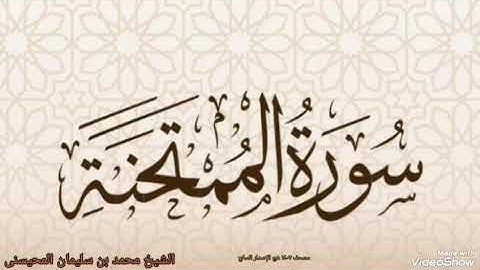 سُورَةُ المُمْتَحَنَةِ
الشيخ محمد بن سليمان المحيسنى
Made with
VideoShow